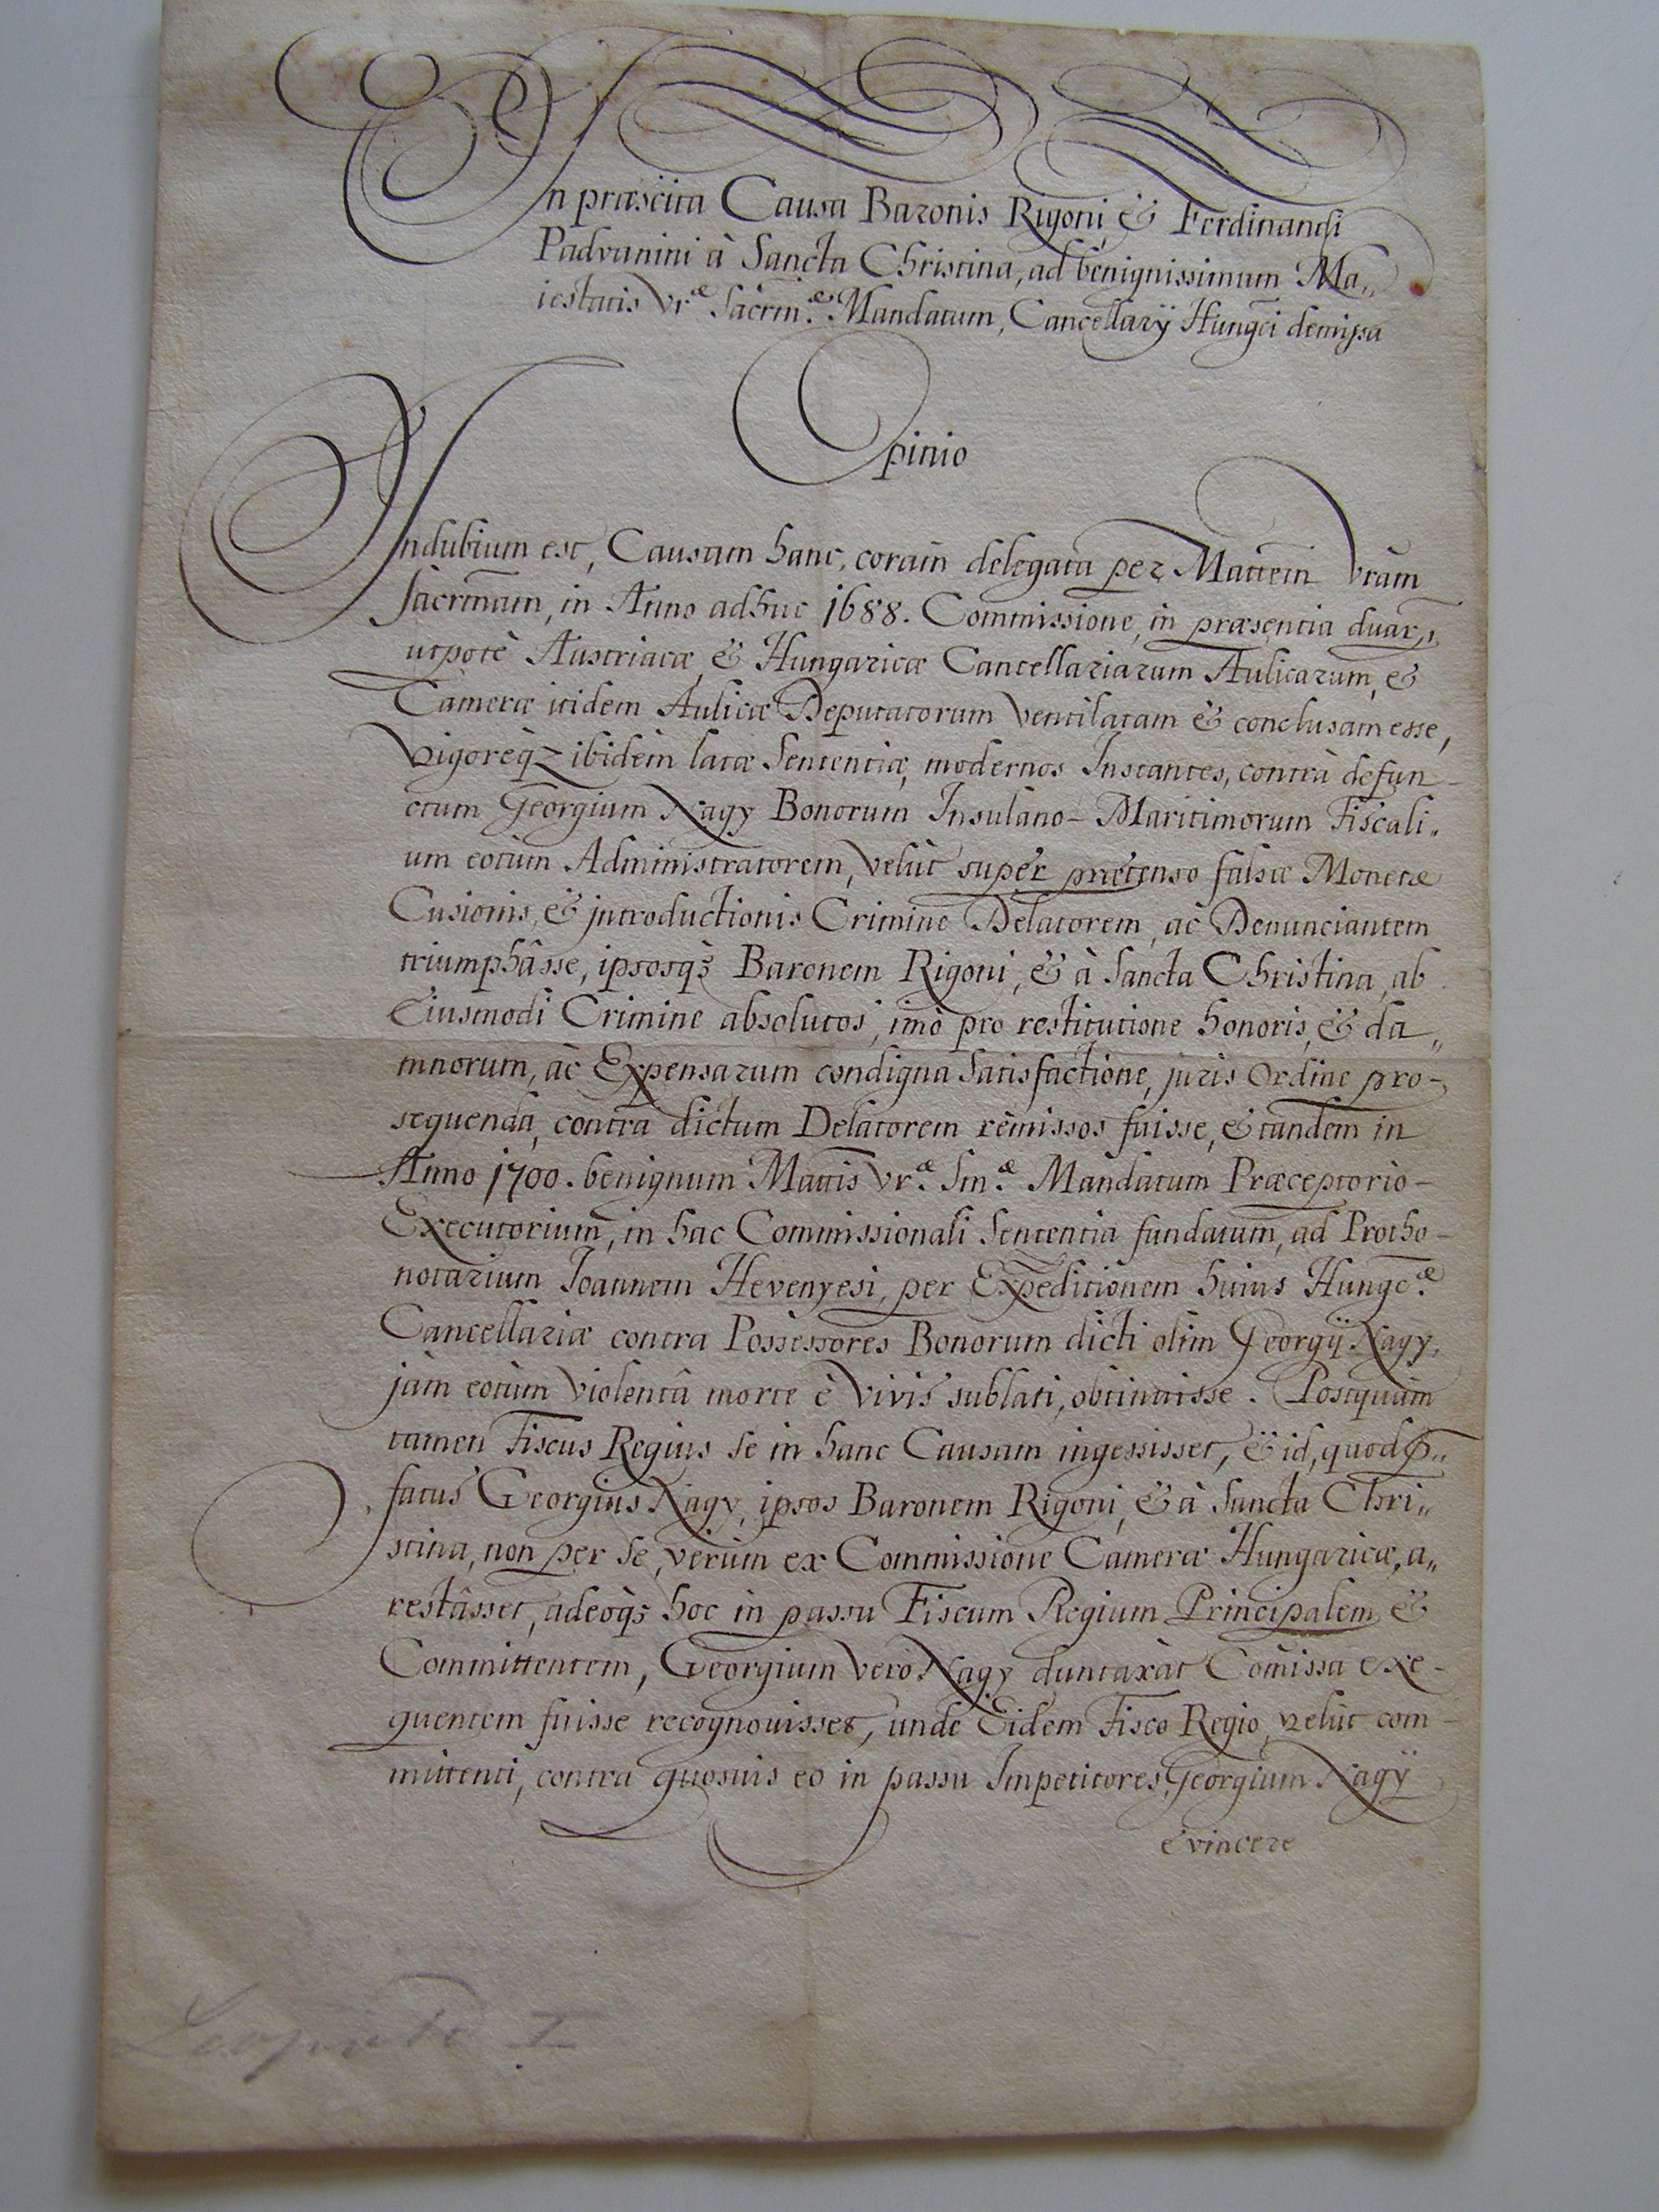 In præscita Causa Baronis Rigoni, & Ferdinandi
Padvanini à Sancta Christina, ad benignissimum Ma„
iestatis Vræ Sacrmæ Mandatum, Cancellarÿ Hungci demissa
Opinio
Indubium est, Causam hanc, coram delegata per Mattem Vram
Sacrmam, in Anno adhuc 1688. Commissione, in præsentia duar.
utpotè Austriacæ, & Hungaricæ Cancellariarum Aulicarum, &
Cameræ itidem Aulicæ Deputatorum ventilatam & conclusam esse,
Vigoreq3 ibidem latæ Sententiæ, modernos Instantes, contrà defun-
ctum Georgium Nagy Bonorum Insulano-Maritimorum Fiscali„
um eotum Administratorem, velut super prætenso falsæ Monetæ
Cusionis, & introductionis Crimine Delatorem, ac Denunciantem
triumphâsse, ipsosq3 Baronem Rigoni, & à Sancta Christina, ab
Eiusmodi Crimine absolutos, imò pro restitutione honoris, & da„
mnorum, ac Expensarum condigna Satisfactione, juris Ordine pro-
sequenda, contra dictum Delatorem remissos fuisse, & tandem in
Anno 1700. benignum Mattis Vræ Smæ Mandatum Præceptorio-
Executorium, in hac Commissionali Sententia fundatum, ad Protho-
notarium Joannem Hevenyesi, per Expeditionem huius Hungcæ
Cancellariæ contra Possessores Bonorum dicti olim Georgÿ Nagy,
jam eotum violentâ morte è vivis sublati, obtinuisse. Postquam
tamen Fiscus Regius se in hanc Causam ingessisset, & id, quod p„
fatus Georgius Nagy, ipsos Baronem Rigoni, & à Sancta Chri„
stina, non per se, verum ex Commissione Cameræ Hungaricæ, a„
restâsset, adeoq3 hoc in passu Fiscum Regium Principalem &
Committentem, Georgium verò Nagy duntaxat Comissa exe-
quentem fuisse recognouisset, unde Eidem Fisco Regio, velut com-
mittenti, contra quosuis eo in passu Impetitores, Georgium Nagÿ
evincere
Leopoldo I